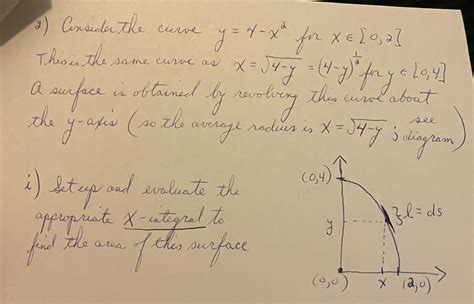 2) Consider the curve y = 4 - x² for x ∈ [0,2]
This is the same curve as x = √(4-y) = (4-y)^(1/2) for y ∈ [0,4]
A surface is obtained by revolving this curve about
the y-axis (so the average radius is x = √(4-y) ; see diagram)
i) Set up and evaluate the
appropriate x-integral to
find the area of this surface
(0,4)
y
l = ds
(0,0)
x
(2,0)